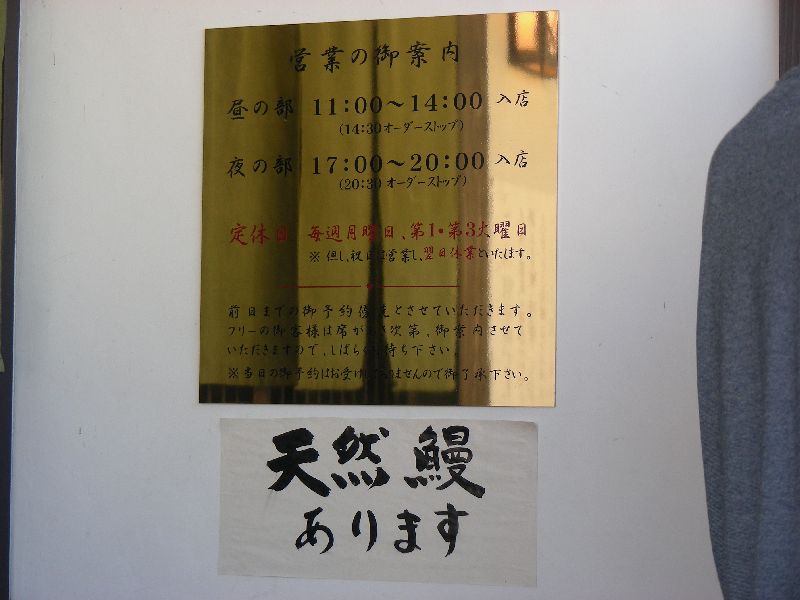 営業の御案内
昼の部 11:00～14:00 入店
(14:30オーダーストップ)
夜の部 17:00～20:00 入店
(20:30オーダーストップ)
定休日 毎週月曜日、第1・第3火曜日
※但し、祝日は営業し、翌日休業といたします。
前日までの御予約優先とさせていただきます。
フリーの御客様は席があき次第、御案内させて
いただきますので、しばらくお待ち下さい。
※当日の御予約はお受けしておりませんので御了承下さい。
天然鰻
あります